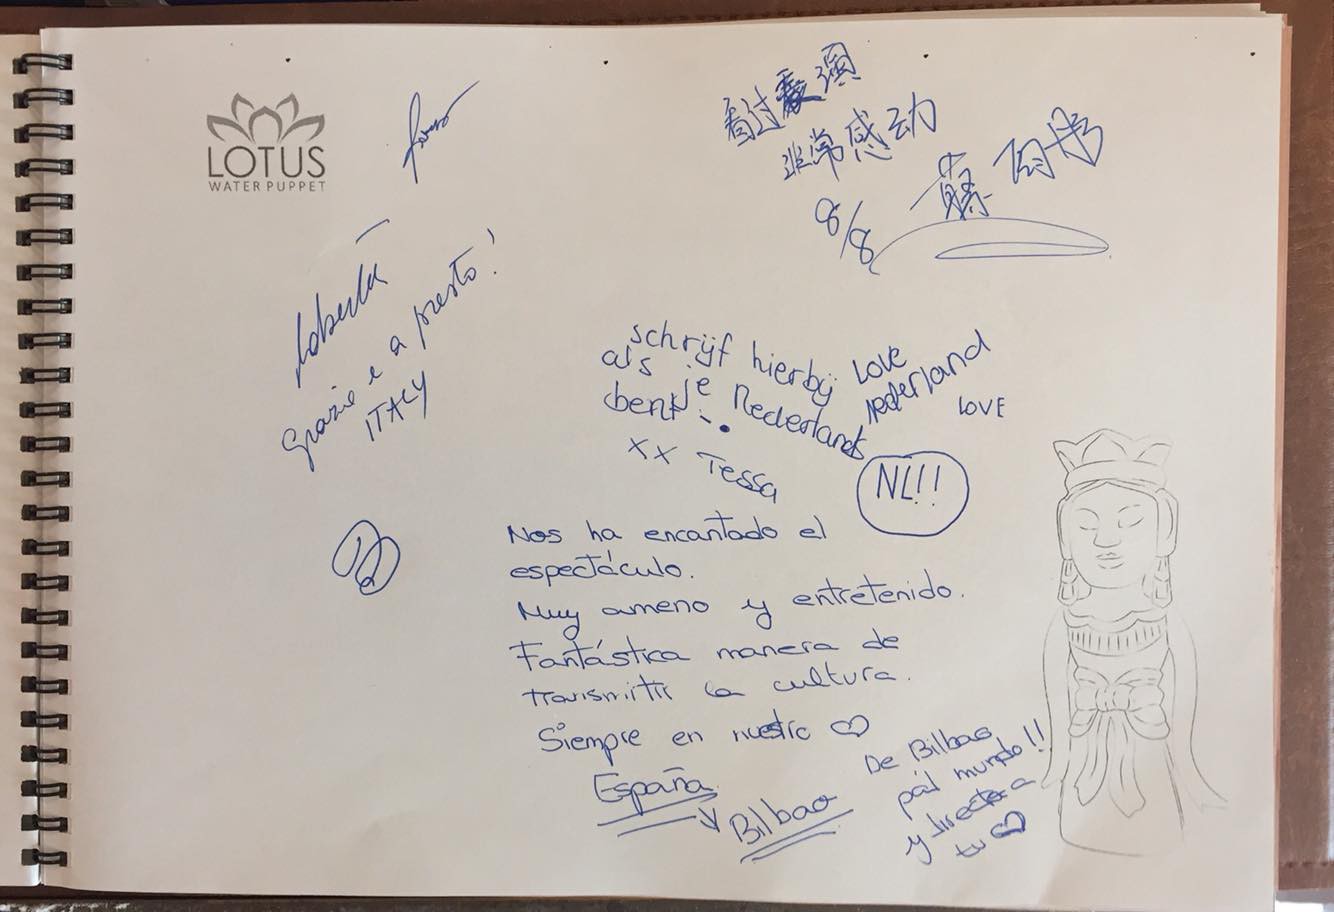 LOTUS
WATER PUPPET
看过表演
非常感动
8/8
Roberta
Grazie e a presto!
ITALY
schrijf hierbij
als je Nederlands
bent
xx Tessa
Love
Nederland
LOVE
NL!!
Nos ha encantado el
espectáculo.
Muy ameno y entretenido.
Fantástica manera de
transmitir la cultura.
Siempre en nuestro ♡
España
Bilbao
De Bilbao
pal mundo!!
y directo a
tu ♡